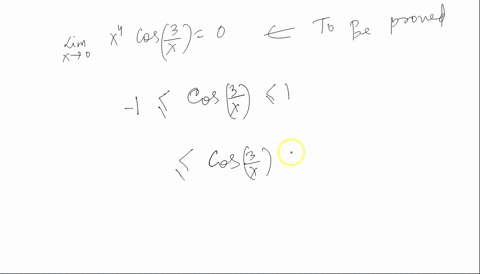 lim x→0 x⁴ cos(3/x) = 0 ⟵ To be proved
-1 ≤ cos(3/x) ≤ 1
≤ cos(3/x)